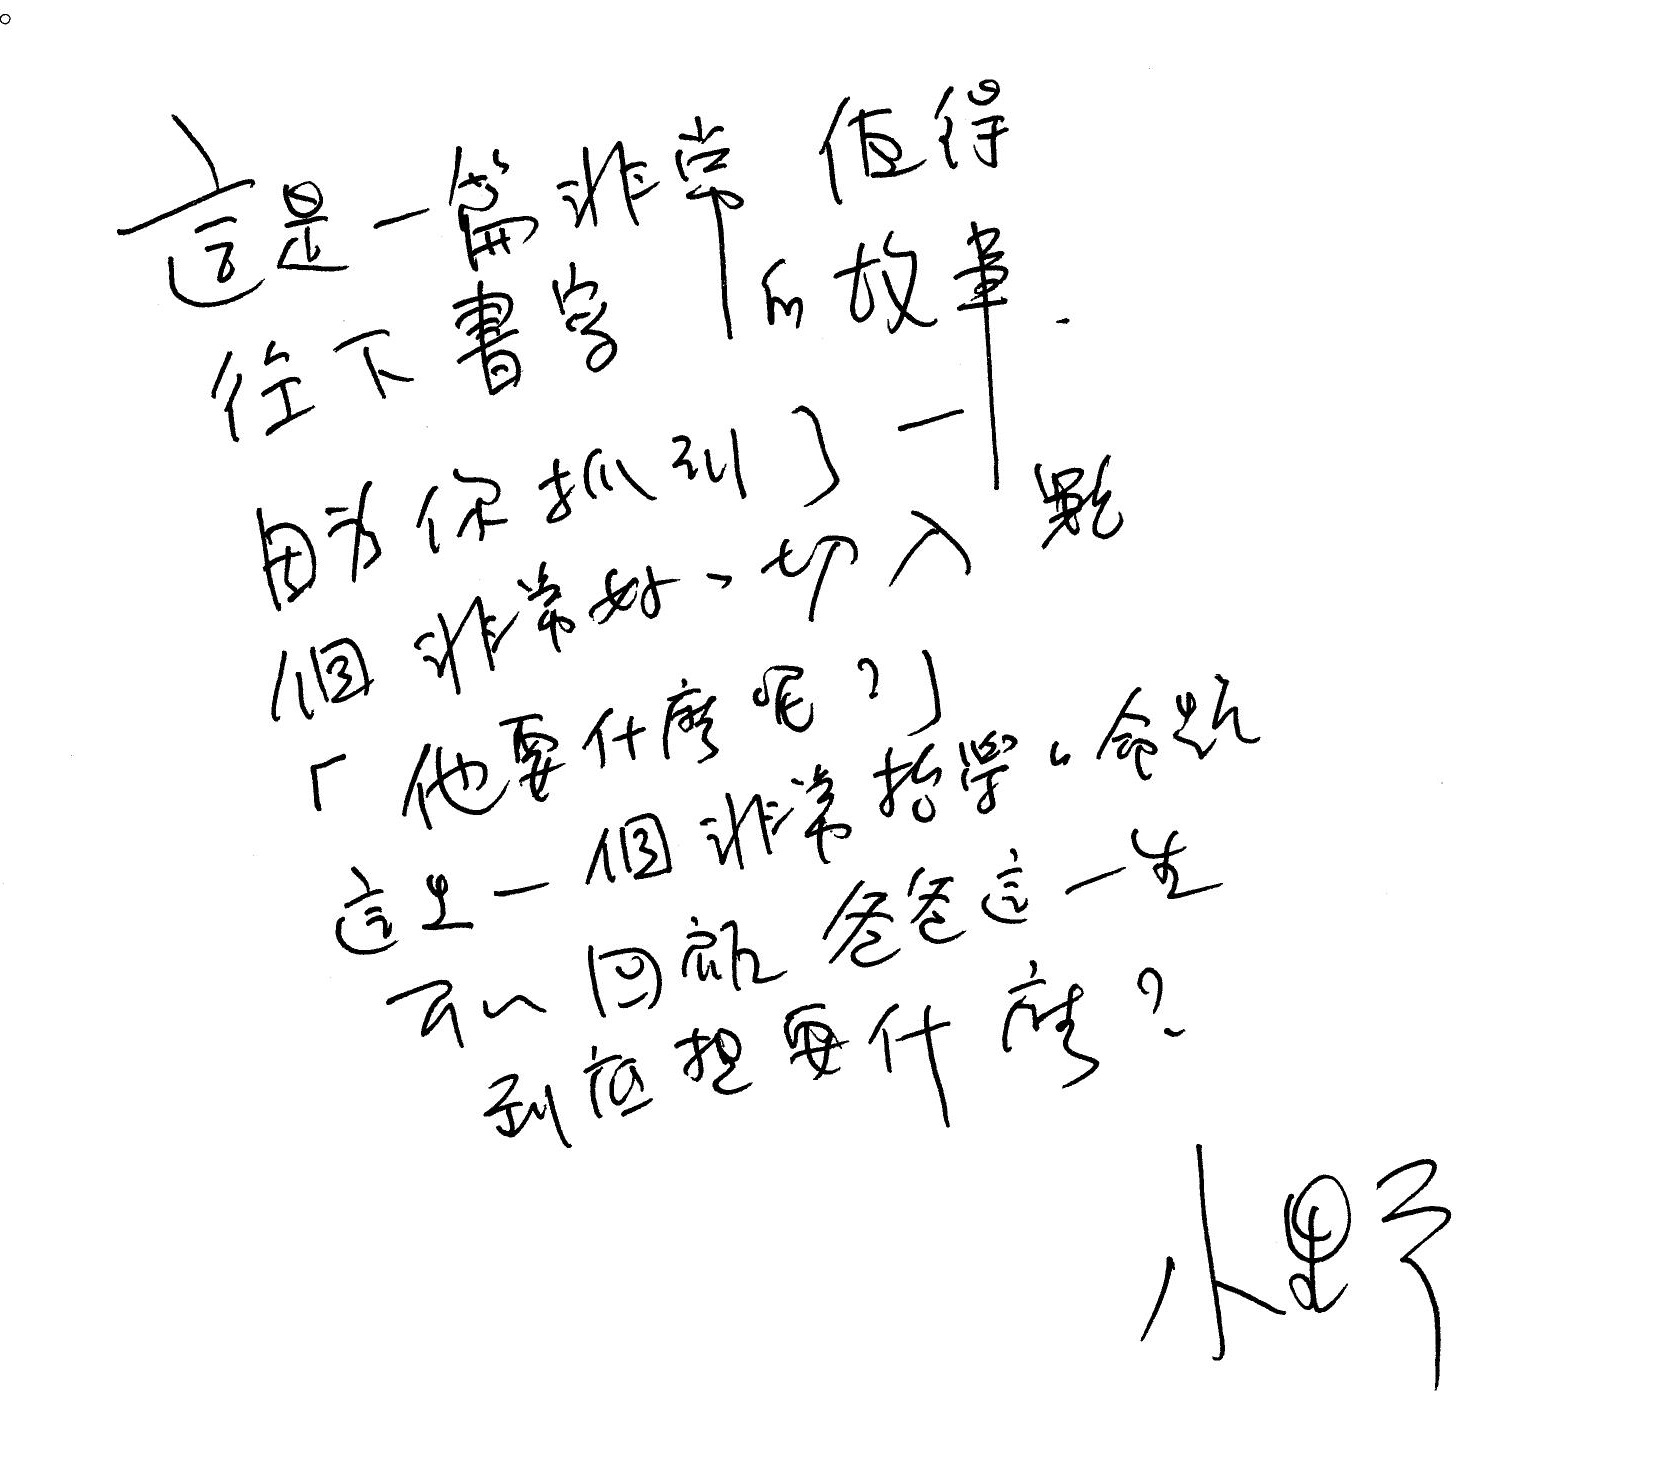 這是一篇非常值得
往下書寫的故事.
因為你抓到了一
個非常好、切入點
「他要什麼呢?」
這是一個非常哲學、命題
可以回顧爸爸這一生
到底想要什麼?
小野